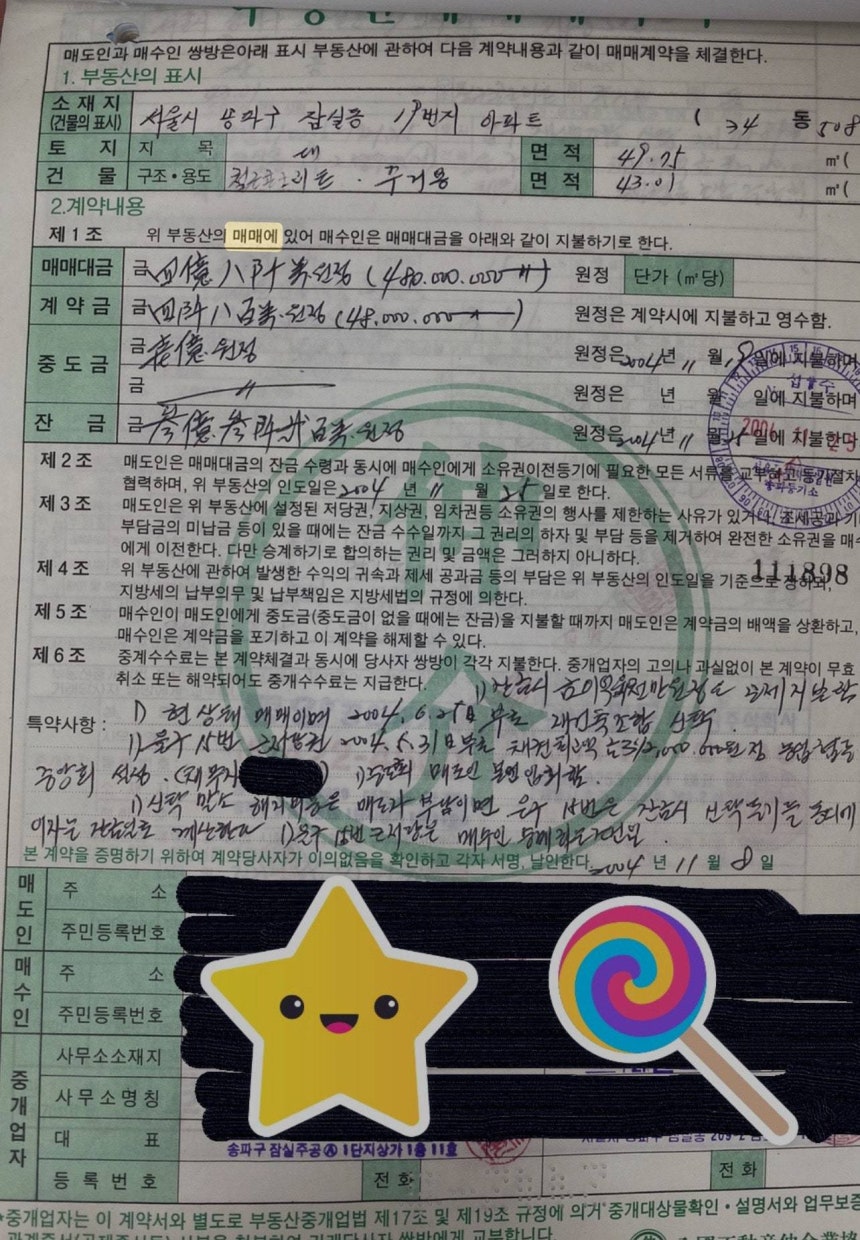 매도인과 매수인 쌍방은아래 표시 부동산에 관하여 다음 계약내용과 같이 매매계약을 체결한다.
1. 부동산의 표시
소 재 지
(건물의 표시)
서울시 송파구 잠실동 19번지 아파트 ( 34 동 508
토 지 지 목 대 면 적 49.75 ㎡(
건 물 구조·용도 철근콘크리트 · 주거용 면 적 43.01 ㎡(
2.계약내용
제 1 조 위 부동산의 매매에 있어 매수인은 매매대금을 아래와 같이 지불하기로 한다.
매매대금 금 四億八阡萬원정 (480.000.000 〃) 원정 단가 (㎡당)
계 약 금 금 四阡八百萬원정 (48.000.000 ) 원정은 계약시에 지불하고 영수함.
중 도 금 금 壹億원정 원정은 2004년 11 월 일에 지불하며
금 〃 원정은 년 월 일에 지불하며
잔 금 금 參億參阡貳百萬원정 원정은 2004년 11 월 25 일에 지불한다
제 2 조 매도인은 매매대금의 잔금 수령과 동시에 매수인에게 소유권이전등기에 필요한 모든 서류를 교부하고 등기절차
협력하며, 위 부동산의 인도일은 2004 년 11 월 25 일로 한다.
제 3 조 매도인은 위 부동산에 설정된 저당권, 지상권, 임차권등 소유권의 행사를 제한하는 사유가 있거나, 조세공과 기
부담금의 미납금 등이 있을 때에는 잔금 수수일까지 그 권리의 하자 및 부담 등을 제거하여 완전한 소유권을 매수
에게 이전한다. 다만 승계하기로 합의하는 권리 및 금액은 그러하지 아니하다.
111898
제 4 조 위 부동산에 관하여 발생한 수익의 귀속과 제세 공과금 등의 부담은 위 부동산의 인도일을 기준으로 정하되,
지방세의 납부의무 및 납부책임은 지방세법의 규정에 의한다.
제 5 조 매수인이 매도인에게 중도금(중도금이 없을 때에는 잔금)을 지불할 때까지 매도인은 계약금의 배액을 상환하고,
매수인은 계약금을 포기하고 이 계약을 해제할 수 있다.
제 6 조 중계수수료는 본 계약체결과 동시에 당사자 쌍방이 각각 지불한다. 중개업자의 고의나 과실없이 본 계약이 무효
취소 또는 해약되어도 중개수수료는 지급한다.
1) 잔금시
특약사항 : 1) 현 상태 매매이며 2004. 6. 25日 부로 재건축조합 신탁.
1) 을구 15번 근저당권 2004. 5. 31日부로 채권최고액 원정 농업협동
중앙회 설정.
1) 신탁 말소 해지비용은 매도자 부담이며 을구 15번은 잔금시 신탁등기를
이자는 잔금일로 계산한다 1) 을구 15번 근저당은 매수인
본 계약을 증명하기 위하여 계약당사자가 이의없음을 확인하고 각자 서명, 날인한다. 2004 년 11 월 8 일
매도인 주 소
주민등록번호
매수인 주 소
주민등록번호
중개업자 사무소소재지
사 무 소 명 칭
대 표
송파구 잠실주공Ⓐ 1단지상가 1층 11호
등 록 번 호 전 화 전 화
*중개업자는 이 계약서와 별도로 부동산중개업법 제17조 및 제19조 규정에 의거 중개대상물확인·설명서와 업무보증